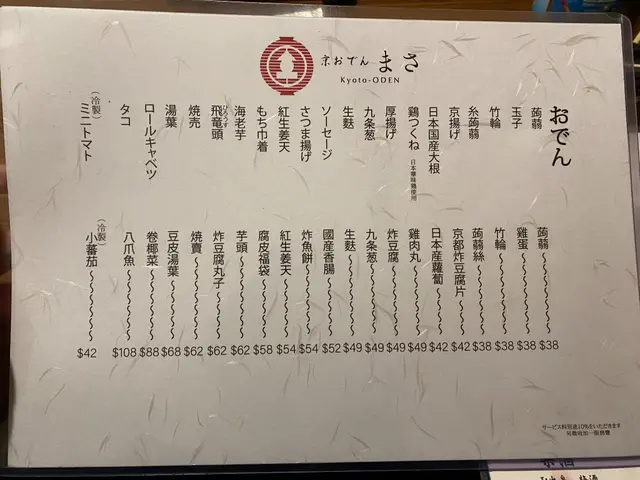 京おでん まさ
Kyoto-ODEN
おでん
蒟蒻 蒟蒻 $38
玉子 雞蛋 $38
竹輪 竹輪 $38
糸蒟蒻 蒟蒻絲 $38
京揚げ 京都炸豆腐片 $42
日本国産大根 日本産蘿蔔 $42
鶏つくね 日本華味鶏使用 雞肉丸 $49
厚揚げ 炸豆腐 $49
九条葱 九条葱 $49
生麩 生麩 $49
ソーセージ 國産香腸 $52
さつま揚げ 炸魚餅 $54
紅生姜天 紅生姜天 $54
もち巾着 腐皮福袋 $58
海老芋 芋頭 $62
飛竜頭 炸豆腐丸子 $62
焼売 燒賣 $62
湯葉 豆皮湯葉 $68
ロールキャベツ 卷椰菜 $88
タコ 八爪魚 $108
(冷製) ミニトマト (冷製) 小蕃茄 $42
サービス料別途10%をいただきます
梅酒